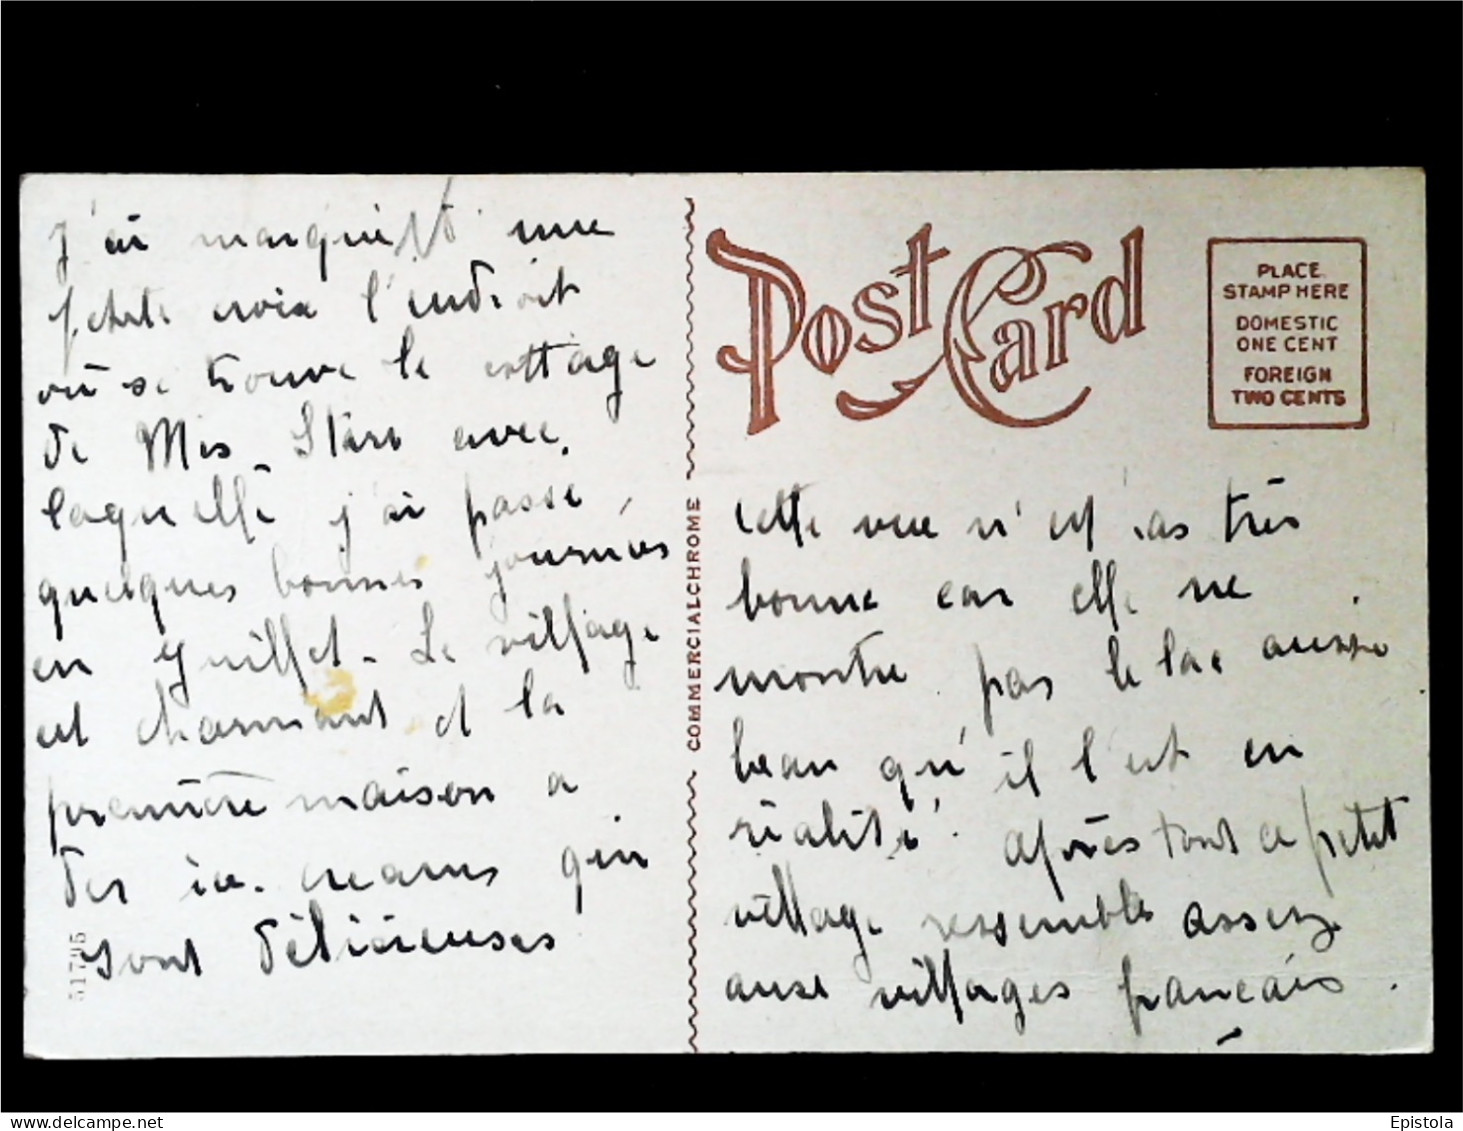 j'ai marqué d'une
petite croix l'endroit
où se trouve le cottage
de Mis Starr avec
laquelle j'ai passé
quelques bonnes journées
en juillet. Le village
est charmant et la
première maison a
des ice-creams qui
sont délicieuses
51795
COMMERCIALCHROME
Post Card
PLACE
STAMP HERE
DOMESTIC
ONE CENT
FOREIGN
TWO CENTS
Cette vue n'est pas très
bonne car elle ne
montre pas le lac aussi
beau qu'il l'est en
réalité. Après tout ce petit
village ressemble assez
aux villages français.
delcampe.net
Epistola